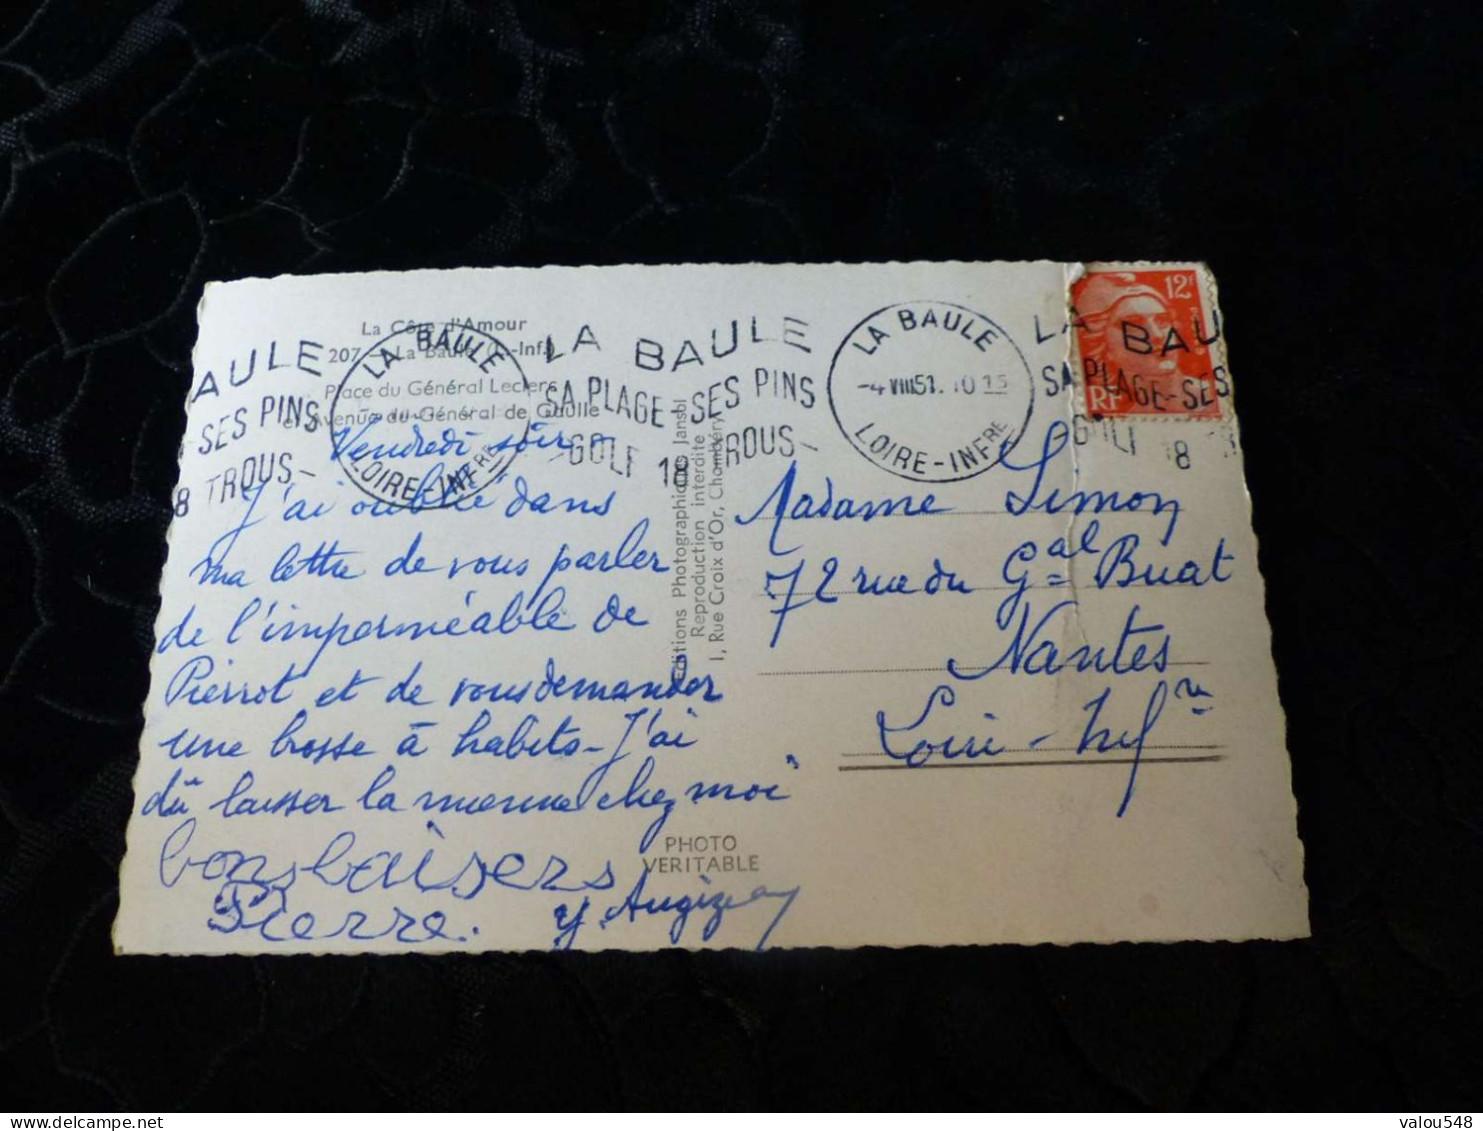 La Côte d'Amour
207 - La Baule (L.-Inf.)
Place du Général Leclerc
et Avenue du Général de Gaulle
AULE
SES PINS
8 TROUS-
LA BAULE
LOIRE-INFRE
LA BAULE
SA PLAGE-SES PINS
-GOLF 18 TROUS-
LA BAULE
-4 VIII51. 10 15
LOIRE-INFRE
LA BAU
SA PLAGE-SES
GOLF 18
12F
RF
Vendredi soir
J'ai oublié dans
ma lettre de vous parler
de l'imperméable de
Pierrot et de vous demander
une brosse à habits - J'ai
dû laisser la mienne chez moi
bons baisers
Pierre.
Editions Photographiques Jansol
Reproduction interdite
1, Rue Croix d'Or, Chambéry
Madame Simon
72 rue du Gal Buat
Nantes
Loire-Infre
PHOTO
VERITABLE
valou548